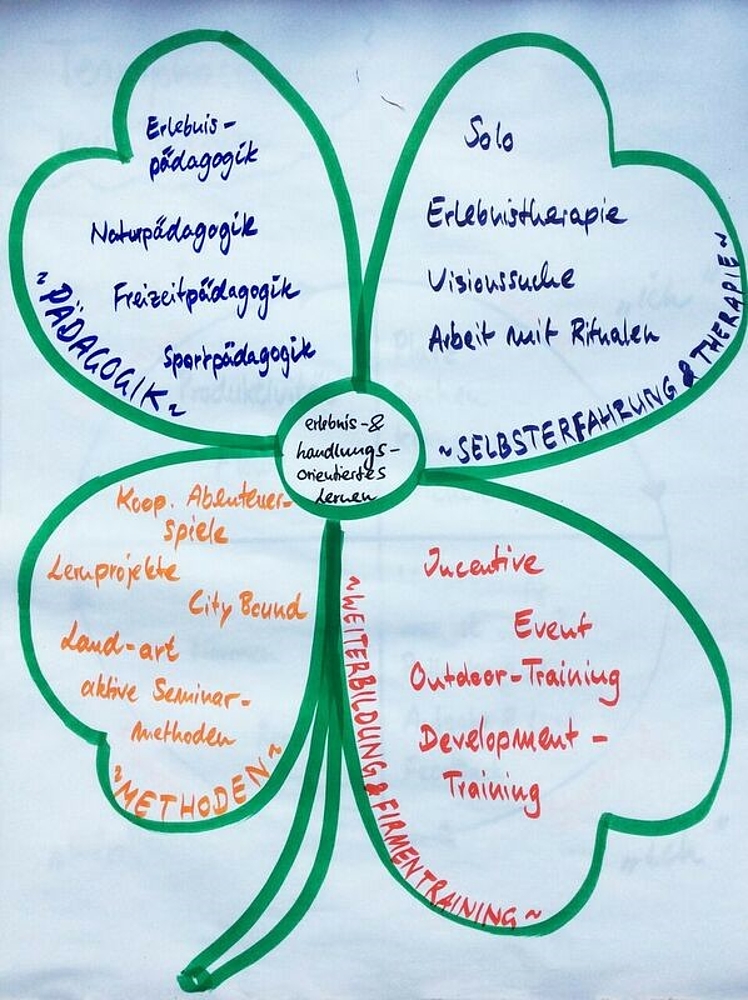 Erlebnis-
pädagogik
Naturpädagogik
Freizeitpädagogik
Sportpädagogik
~PÄDAGOGIK~
Solo
Erlebnistherapie
Visionssuche
Arbeit mit Ritualen
~SELBSTERFAHRUNG & THERAPIE~
erlebnis-&
handlungs-
orientiertes
Lernen
Koop. Abenteuer-
spiele
Lernprojekte
City Bound
Land-art
aktive Seminar-
methoden
~METHODEN~
Incentive
Event
Outdoor-Training
Development-
Training
~WEITERBILDUNG & FIRMENTRAINING~